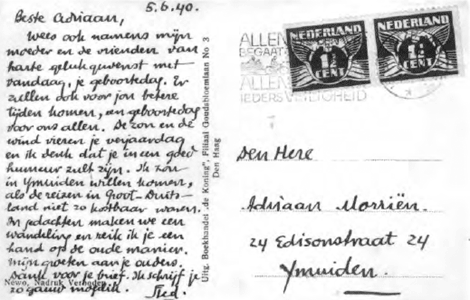 5.6.40.
Beste Adriaan,
Wees ook namens mijn
moeder en de vrienden van
harte gelukgewenst met
vandaag, je geboortedag. Er
zullen ook voor jou betere
tijden komen, een geboortedag
voor ons allen. De zon en de
wind vieren je verjaardag
en ik denk dat je in een goed
humeur zult zijn. Ik zou
in Ymuiden willen komen,
als de reizen in Groot-Duits-
land niet zo kostbaar waren.
In gedachten maken we een
wandeling en reik ik je een
hand op de oude manier.
Mijn groeten aan je ouders.
Dank voor je brief. Ik schrijf je
zo gauw mogelik.
Newo, Nadruk Verboden
Uitg. Boekhandel „de Koning", Filiaal Goudsbloemlaan No 3
Den Haag
NEDERLAND
1½
CENT
NEDERLAND
1½
CENT
ALLEN
BEGAAT
ALLEN
IEDERS VEILIGHEID
Den Here
Adriaan Morriën.
24 Edisonstraat 24
Ymuiden.